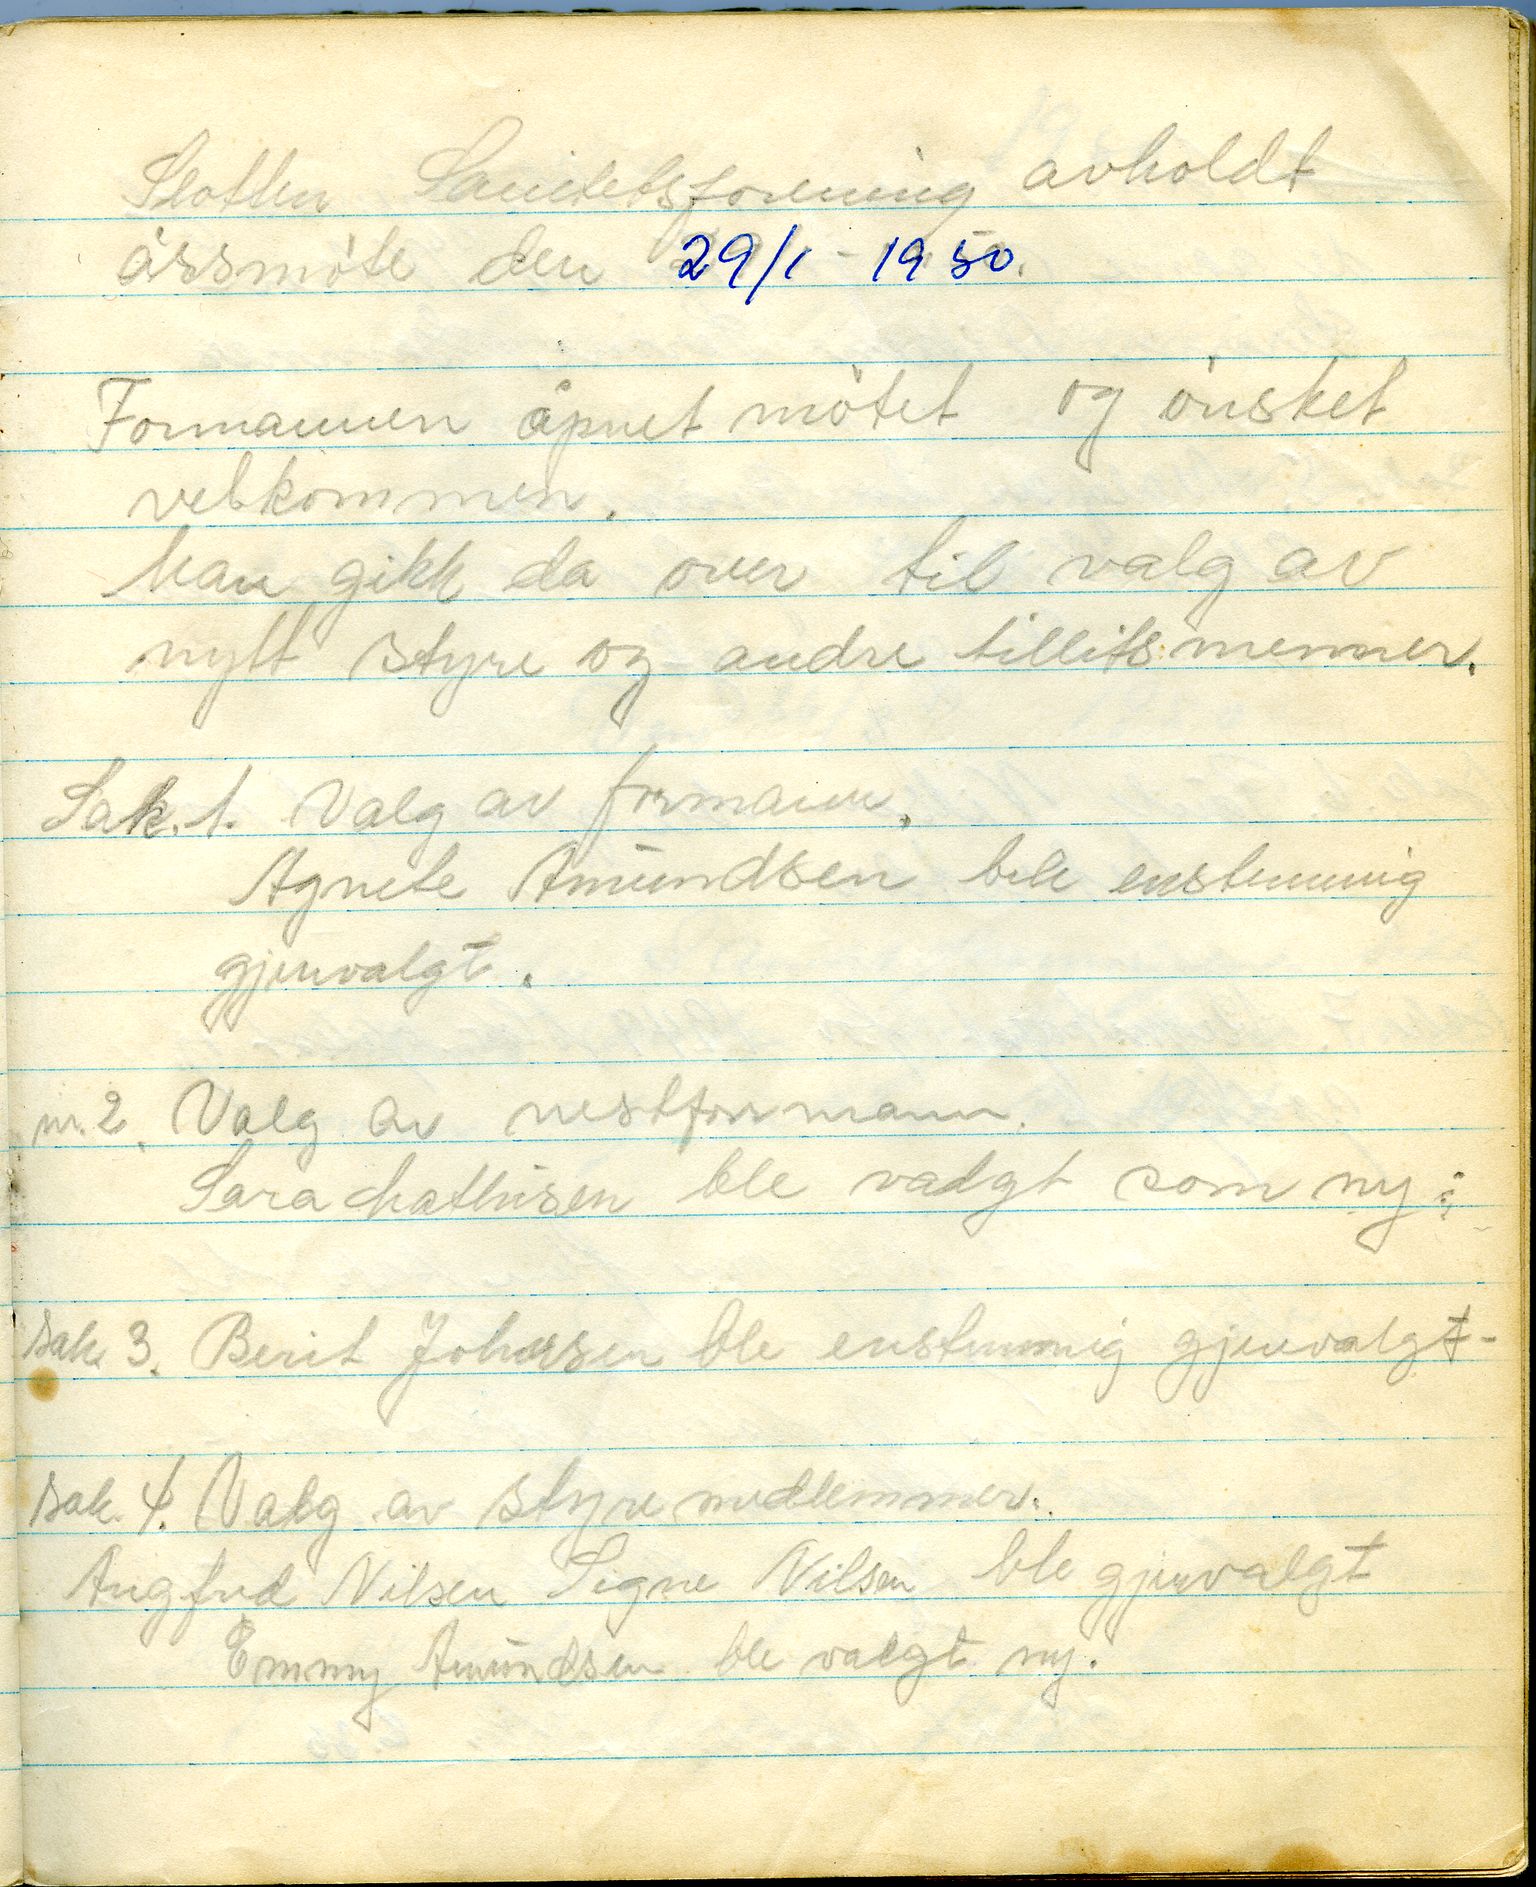 Slotten Sanitetsforening avholdt
årsmöte den 29/1 - 1950.
Formannen åpnet mötet og önsket
velkommen.
han gikk da over til valg av
nytt styre og andre tillitsmenner.
Sak. 1. Valg av formann.
Agnete Amundsen ble enstemmig
gjenvalgt.
nr. 2. Valg av nestformann.
Sara Mathisen ble valgt som ny.
Sak 3. Berit Johnsen ble enstemmig gjenvalgt-
Sak. 4. Valg av styremedlemmer.
Nilsen Signe Nilsen ble gjenvalgt
Emmy Amundsen ble valgt ny.